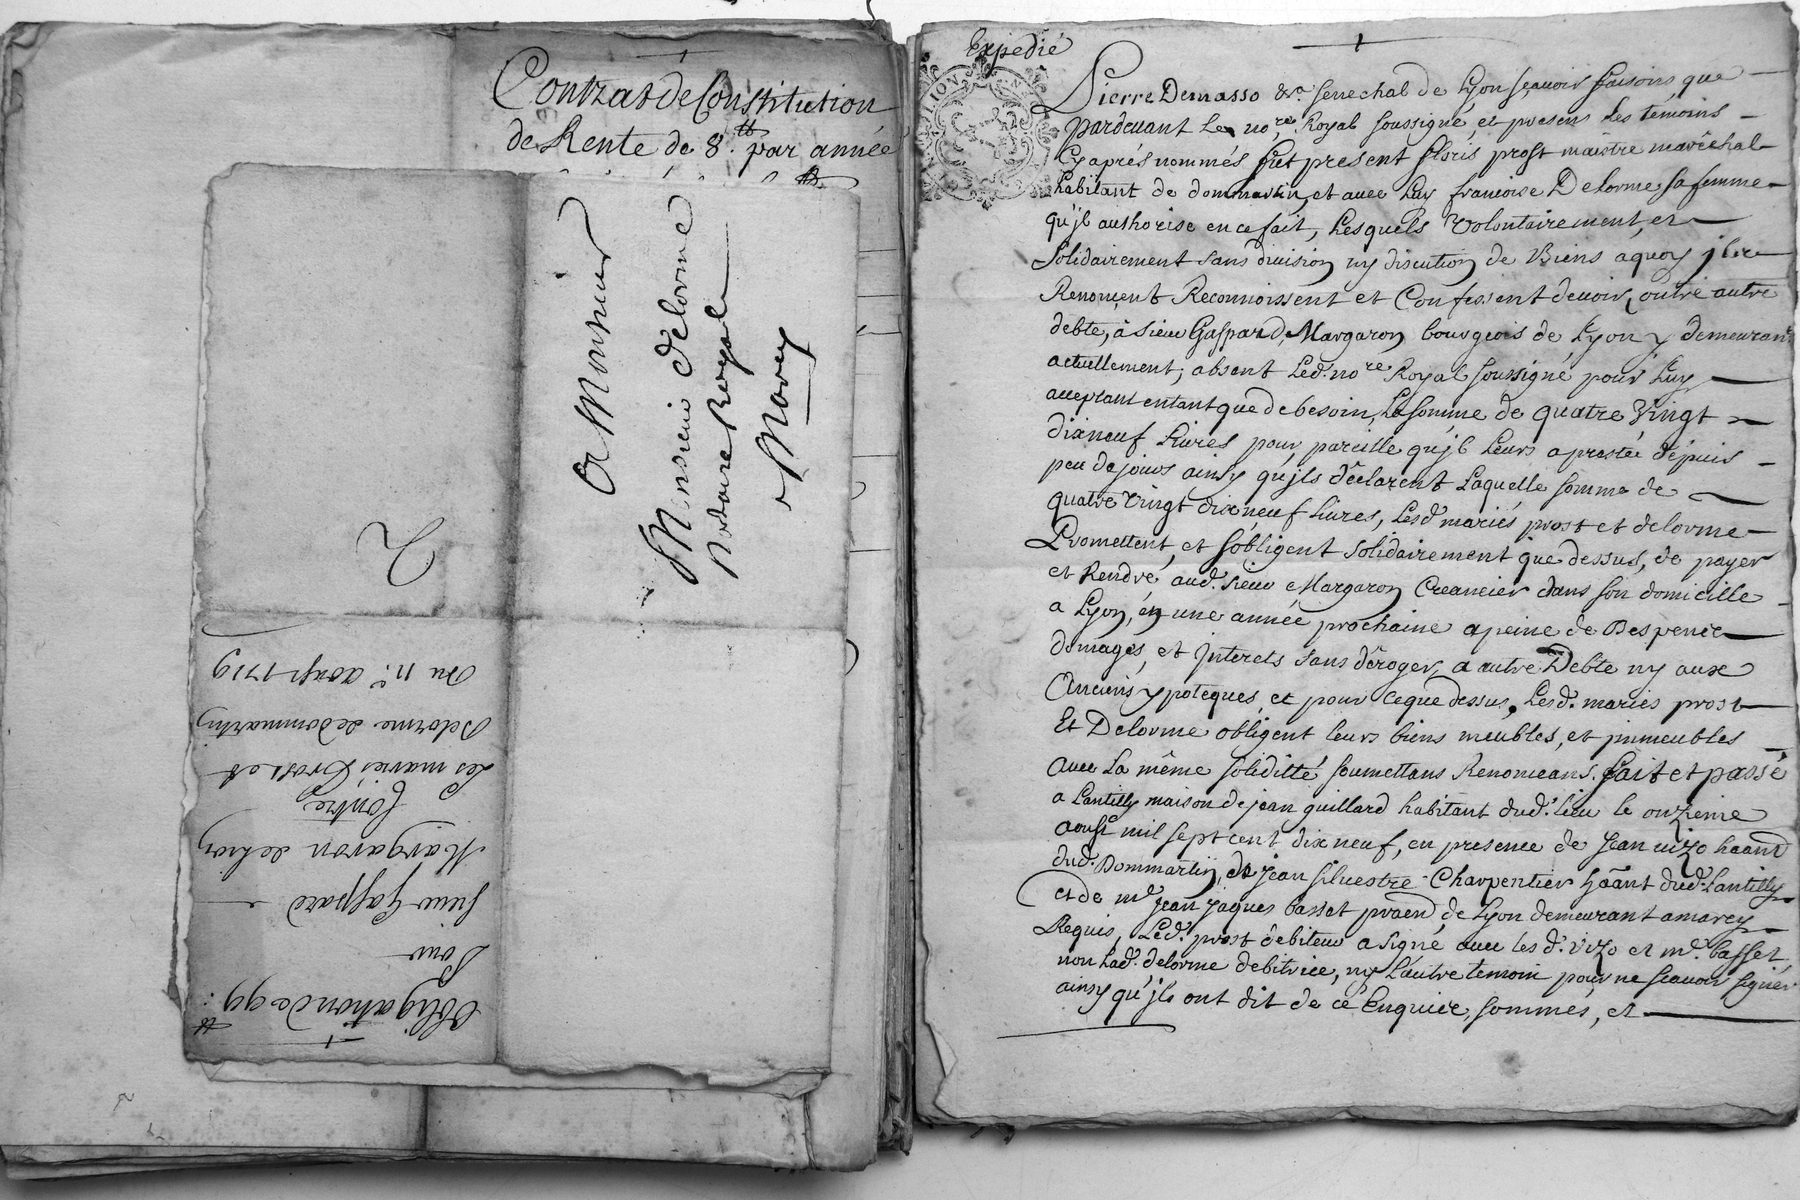 Contrat de Constitution
de Rente de 8.tt par année
A Monsieur
Monsieur delorme
Nottaire Royal
a Marcy
2
Obligation de 99.tt
Pour
sieur Gaspard
Margaron de Lion
Contre
Les mariés prost et
Delorme de dommartin
Du 11.e aoust 1719
Expedié
LION
Pierre Demasso &c.a senechal de Lyon sçavoir faisons que
pardevant le no.re Royal soussigné, et presens les témoins
cy aprés nommés fut present floris prost maistre maréchal
habitant de dommartin, et avec luy francoise Delorme sa femme
qu'jl authorise en ce fait, Lesquels volontairement, et
solidairement sans division ny discution de Biens a quoy jls
Renonçent Reconnoissent et Confessent devoir, outre autre
debte, à sieur Gaspard Margaron bourgeois de Lyon y demeurant
actuellement, absent Led. no.re Royal soussigné pour Luy
acceptant entant que de besoin, La somme de quatre vingt
dixneuf Livres pour pareille qu'jl Leurs a prestée dépuis
peu de jours ainsy qu'jls déclarent Laquelle somme de
quatre vingt dixneuf Livres, Lesd. mariés prost et delorme
Promettent, et s'obligent solidairement que dessus, de payer
et Rendre, aud. sieur Margaron Creancier dans son domicille
a Lyon, en une année prochaine a peine de Despence
domages, et jnterets sans déroger, a autre Debte ny aux
Anciens ypoteques, et pour ce que dessus, Lesd. mariés prost
Et Delorme obligent leurs biens meubles, et jmmeubles
Avec La même soliditté soumettans Renonceans. fait et passé
a Lantilly maison de jean guillard habitant dud. lieu le onzieme
aoust mil sept cent dixneuf, en presence de jean vizo haânt
dud. Dommartin, de jean silvestre Charpentier haânt dud. Lantilly
et de m.e jean jaques basset praen de Lyon demeurant a marcy
Requis, Led. prost débiteur a signé avec les d. vizo et m.e basset,
non Lad. delorme debitrice, ny L'autre temoin pour ne sçavoir signer
ainsy qu'jls ont dit de ce Enquis, sommés, et